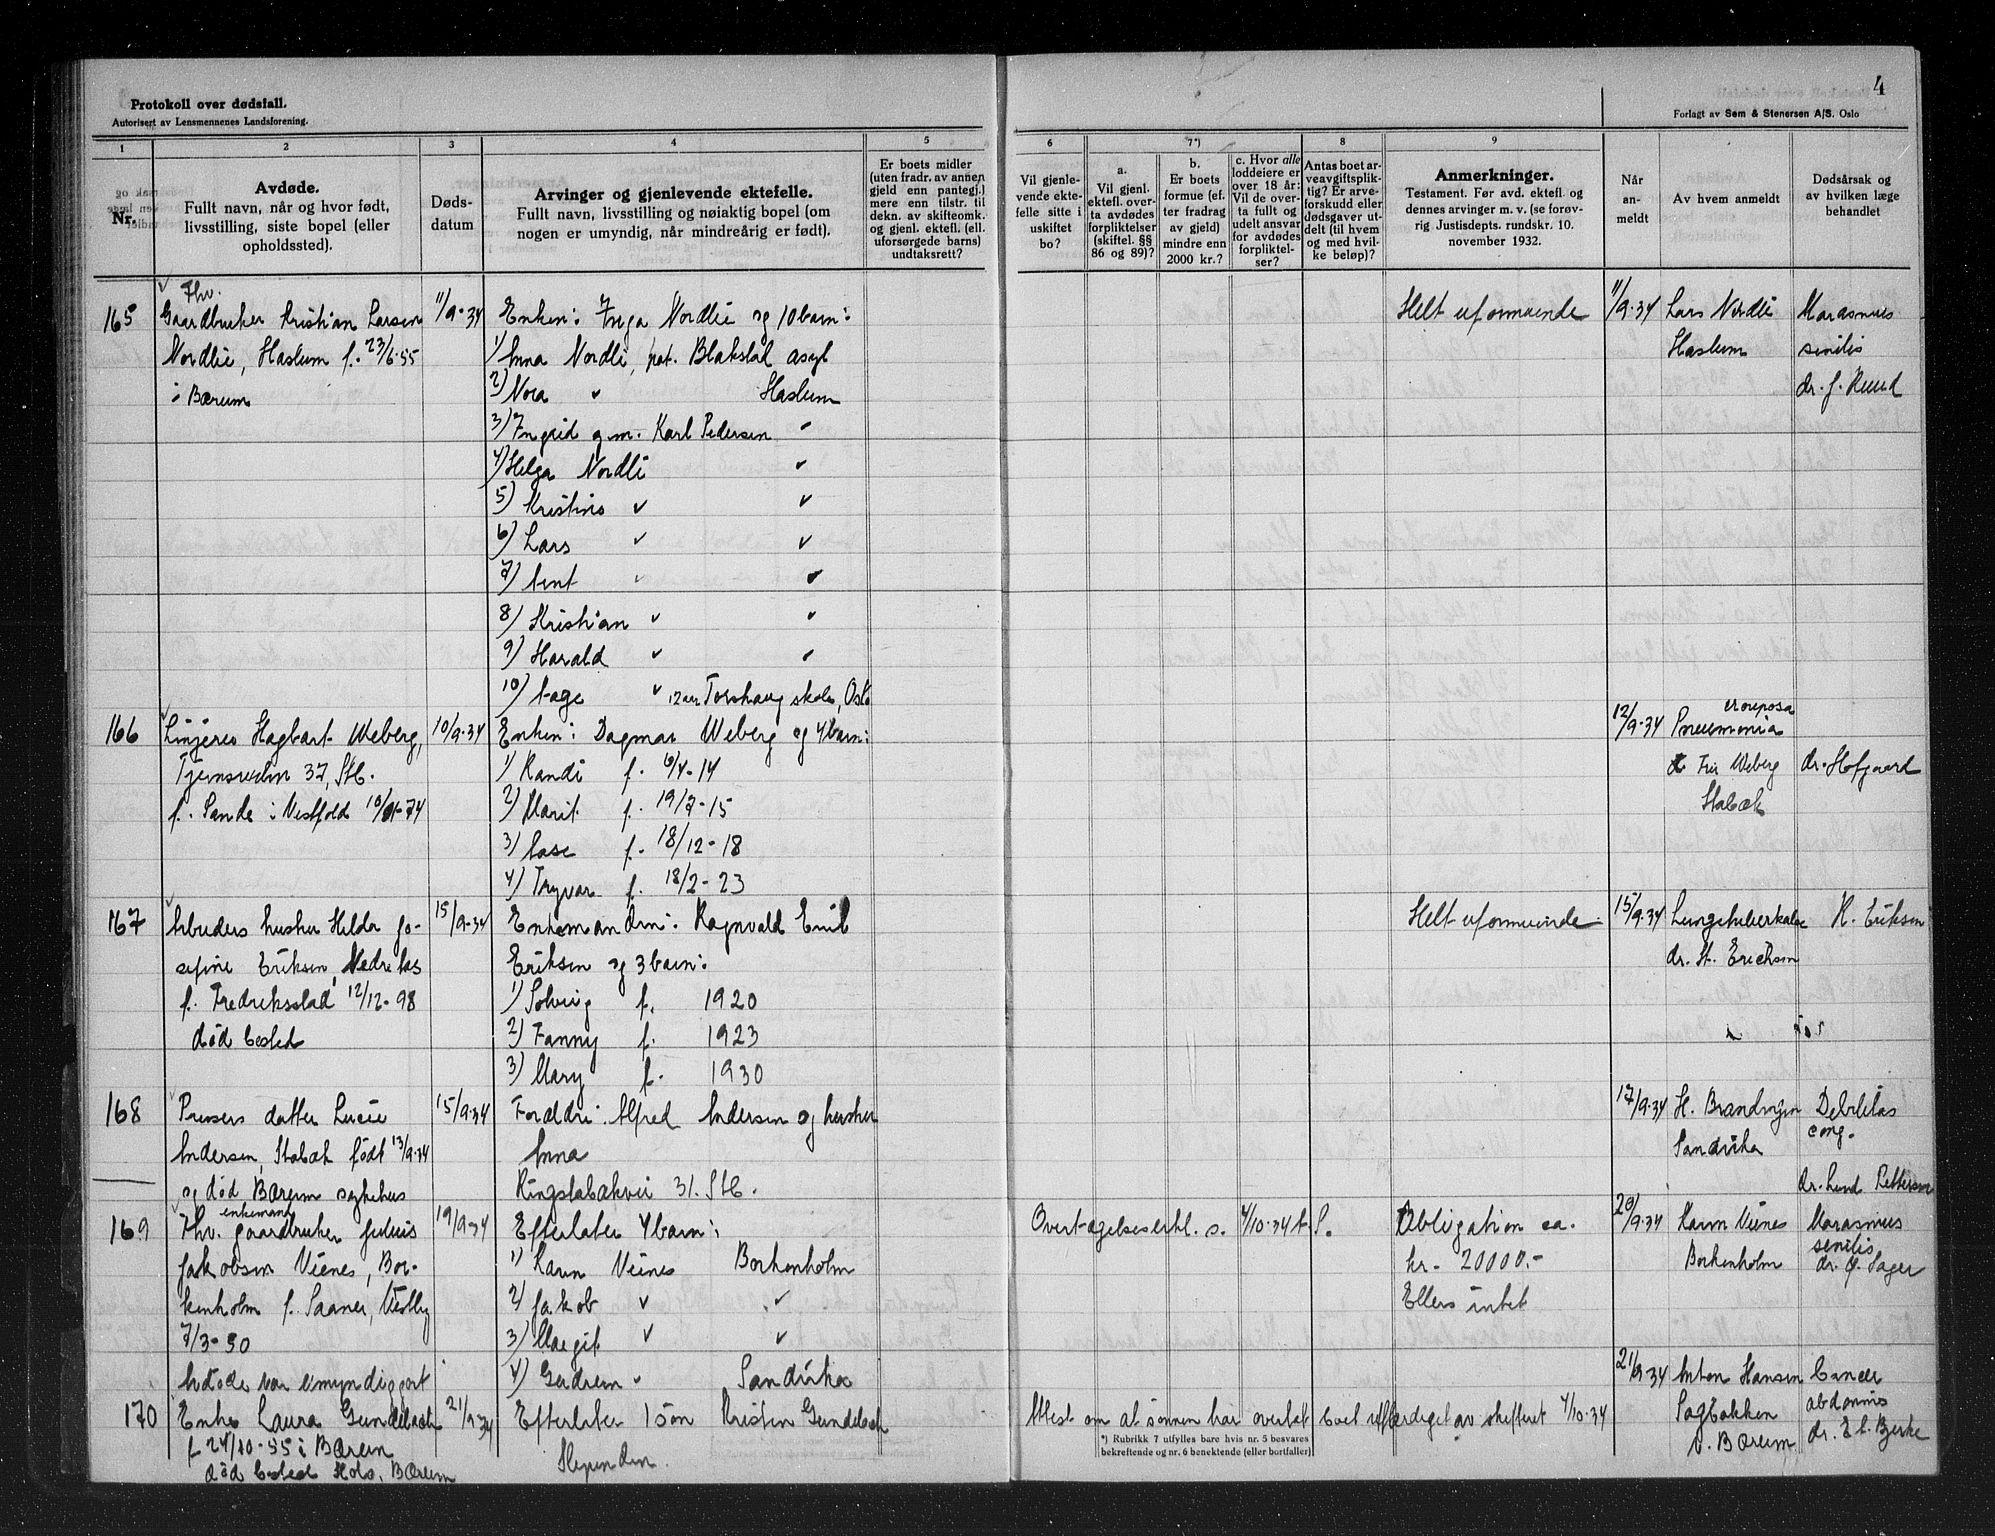 4
Protokoll over dødsfall.
Autorisert av Lensmennenes Landsforening.
Forlagt av Sem & Stenersen A/S. Oslo
1 2 3 4 5 6 7*) 8 9
Nr.
Avdøde.
Fullt navn, når og hvor født,
livsstilling, siste bopel (eller
opholdssted).
Døds-
datum
Arvinger og gjenlevende ektefelle.
Fullt navn, livsstilling og nøiaktig bopel (om
nogen er umyndig, når mindreårig er født).
Er boets midler
(uten fradr. av annen
gjeld enn pantegj.)
mere enn tilstr. til
dekn. av skifteomk.
og gjenl. ektef. (ell.
uforsørgede barns)
undtaksrett?
Vil gjenle-
vende ekte-
felle sitte i
uskiftet
bo?
a.
Vil gjenl.
ektefl. over-
ta avdødes
forpliktelser
(skiftel. §§
86 og 89)?
b.
Er boets
formue (ef-
ter fradrag
av gjeld)
mindre enn
2000 kr.?
c. Hvor alle
loddeiere er
over 18 år:
Vil de over-
ta fullt og
udelt ansvar
for avdødes
forpliktel-
ser?
Antas boet ar-
veavgiftsplik-
tig? Er arve-
forskudd eller
dødsgaver ut-
delt (til hvem
og med hvil-
ke beløp)?
Anmerkninger.
Testament. Før avd. ektefl. og
dennes arvinger m. v. (se forøv-
rig Justisdepts. rundskr. 10.
november 1932.
Når
an-
meldt
Av hvem anmeldt
Dødsårsak og
av hvilken læge
behandlet
165
Fhv.
Gaardbruker Kristian Larsen
Nordlie, Haslum f. 23/6-55
i Bærum
11/9-34
Enken: Inga Nordlie og 10 barn:
1) Anna Nordli, pat. Blakstad asyl
2) Nora " Haslum
3) Ingrid g.m. Karl Pedersen "
4) Helga Nordli "
5) Kristine " "
6) Lars " "
7) Arnt " "
8) Kristian " "
9) Harald " "
10) Aage " 12 aar Torshaug skole, Oslo
Helt uformuende
11/9-34
Lars Nordli
Haslum
Marasmus
senilis
dr. J. Ruud
166
Hagbart Weberg,
37, Stb.
f. Sande i Vestfold
10/9-34
Enken: Dagmar Weberg og 4 barn:
1) Randi f. 6/4-14
2) Marit f. 19/7-15
3) Aase f. 18/12-18
4) Trygvar f. 18/2-23
12/9-34
crouposa
Pneumonia
Fru Weberg
Stabæk
dr. Hofgaard
167
Arbeiders hustru Hilda Jo-
sefine Eriksen, Nedre Aas
f. Fredriksstad 12/12-98
død bosted
15/9-34
Enkemanden: Ragnvald Emil
Eriksen og 3 barn:
1) Solveig f. 1920
2) Fanny f. 1923
3) Mary f. 1930
Helt uformuende
15/9-34
Lungetuberkulose
dr. St. Erichsen
R. Eriksen
168
datter Lucie
Andersen, Stabæk født 13/9-34
og død, Bærum sykehus
15/9-34
Foreldre: Alfred Andersen og hustru
Anna
Ringstabækvei 31. Stb.
17/9-34
Sandvika
Debilitas
cong.
dr. Lund Pettersen
169
enkemand
Fhv. gaardbruker Julius
Jakobsen Vienes, Bor-
kenholm f. Saaner, Vestby
7/3-50
Avdøde var umyndiggjort
19/9-34
Efterlater 4 barn:
1) Karen Vienes Borkenholm
2) Jakob " "
3) Margit " "
4) Gudrun " Sandvika
Overtagelseserkl. s. 4/10-34 t. S.
Obligation ca.
kr. 20000.-
Ellers intet
20/9-34
Karen Vienes
Borkenholm
Marasmus
senilis
170
Enke Laura Gundebach
f. 24/10-55 i Bærum
død bosted Hols, Bærum
21/9-34
Efterlater 1 søn Kristen Gundebach
Slependen.
Attest om at sønnen har overtatt boet utferdiget av skifteret 4/10-34
21/9-34
Anton Hansen
Sagbakken
V. Bærum
Cancer
abdominis
dr. E. C. Bjerke
*) Rubrikk 7 utfylles bare hvis nr. 5 besvares
bekreftende og nr. 6 benektende (eller bortfaller)